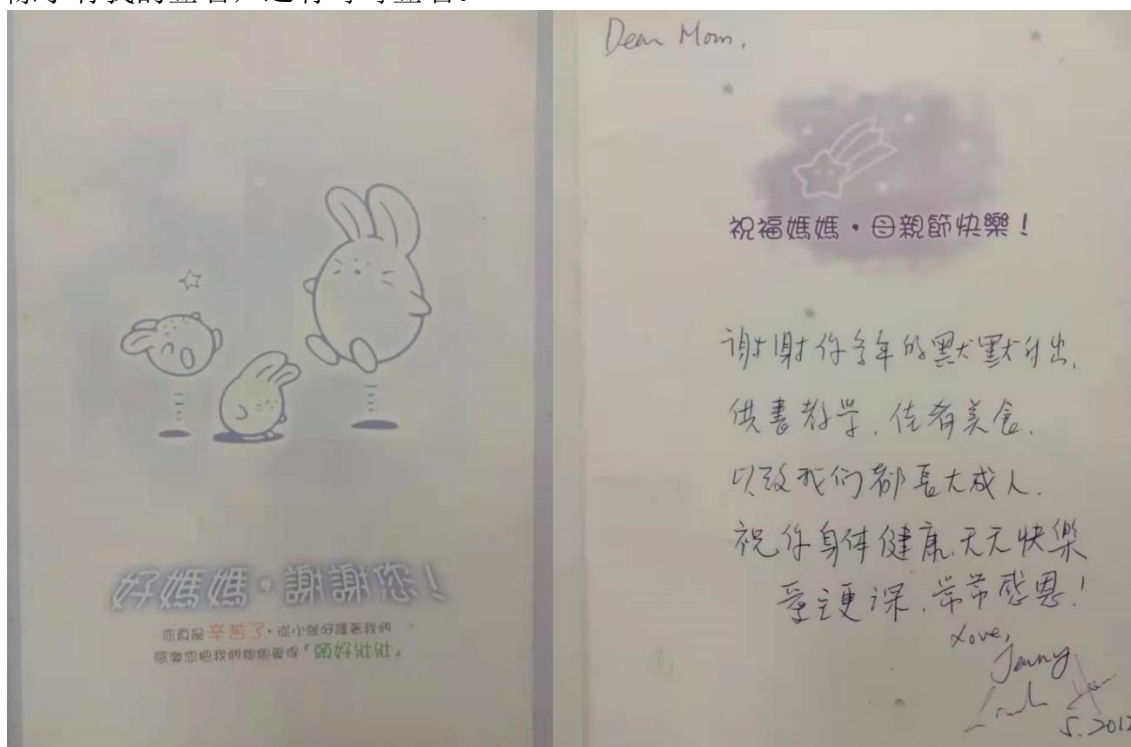 好媽媽·謝謝您!
您真是辛苦了·從小就呵護著我們
感激您把我們個個養得「頭好壯壯」
Dear Mom,
祝福媽媽·母親節快樂!
谢谢你多年的默默付出,
供書教学,住有美食.
以致我们都長大成人.
祝你身体健康,天天快樂
爱主更深,常常感恩!
Love,
Jenny
5.2012